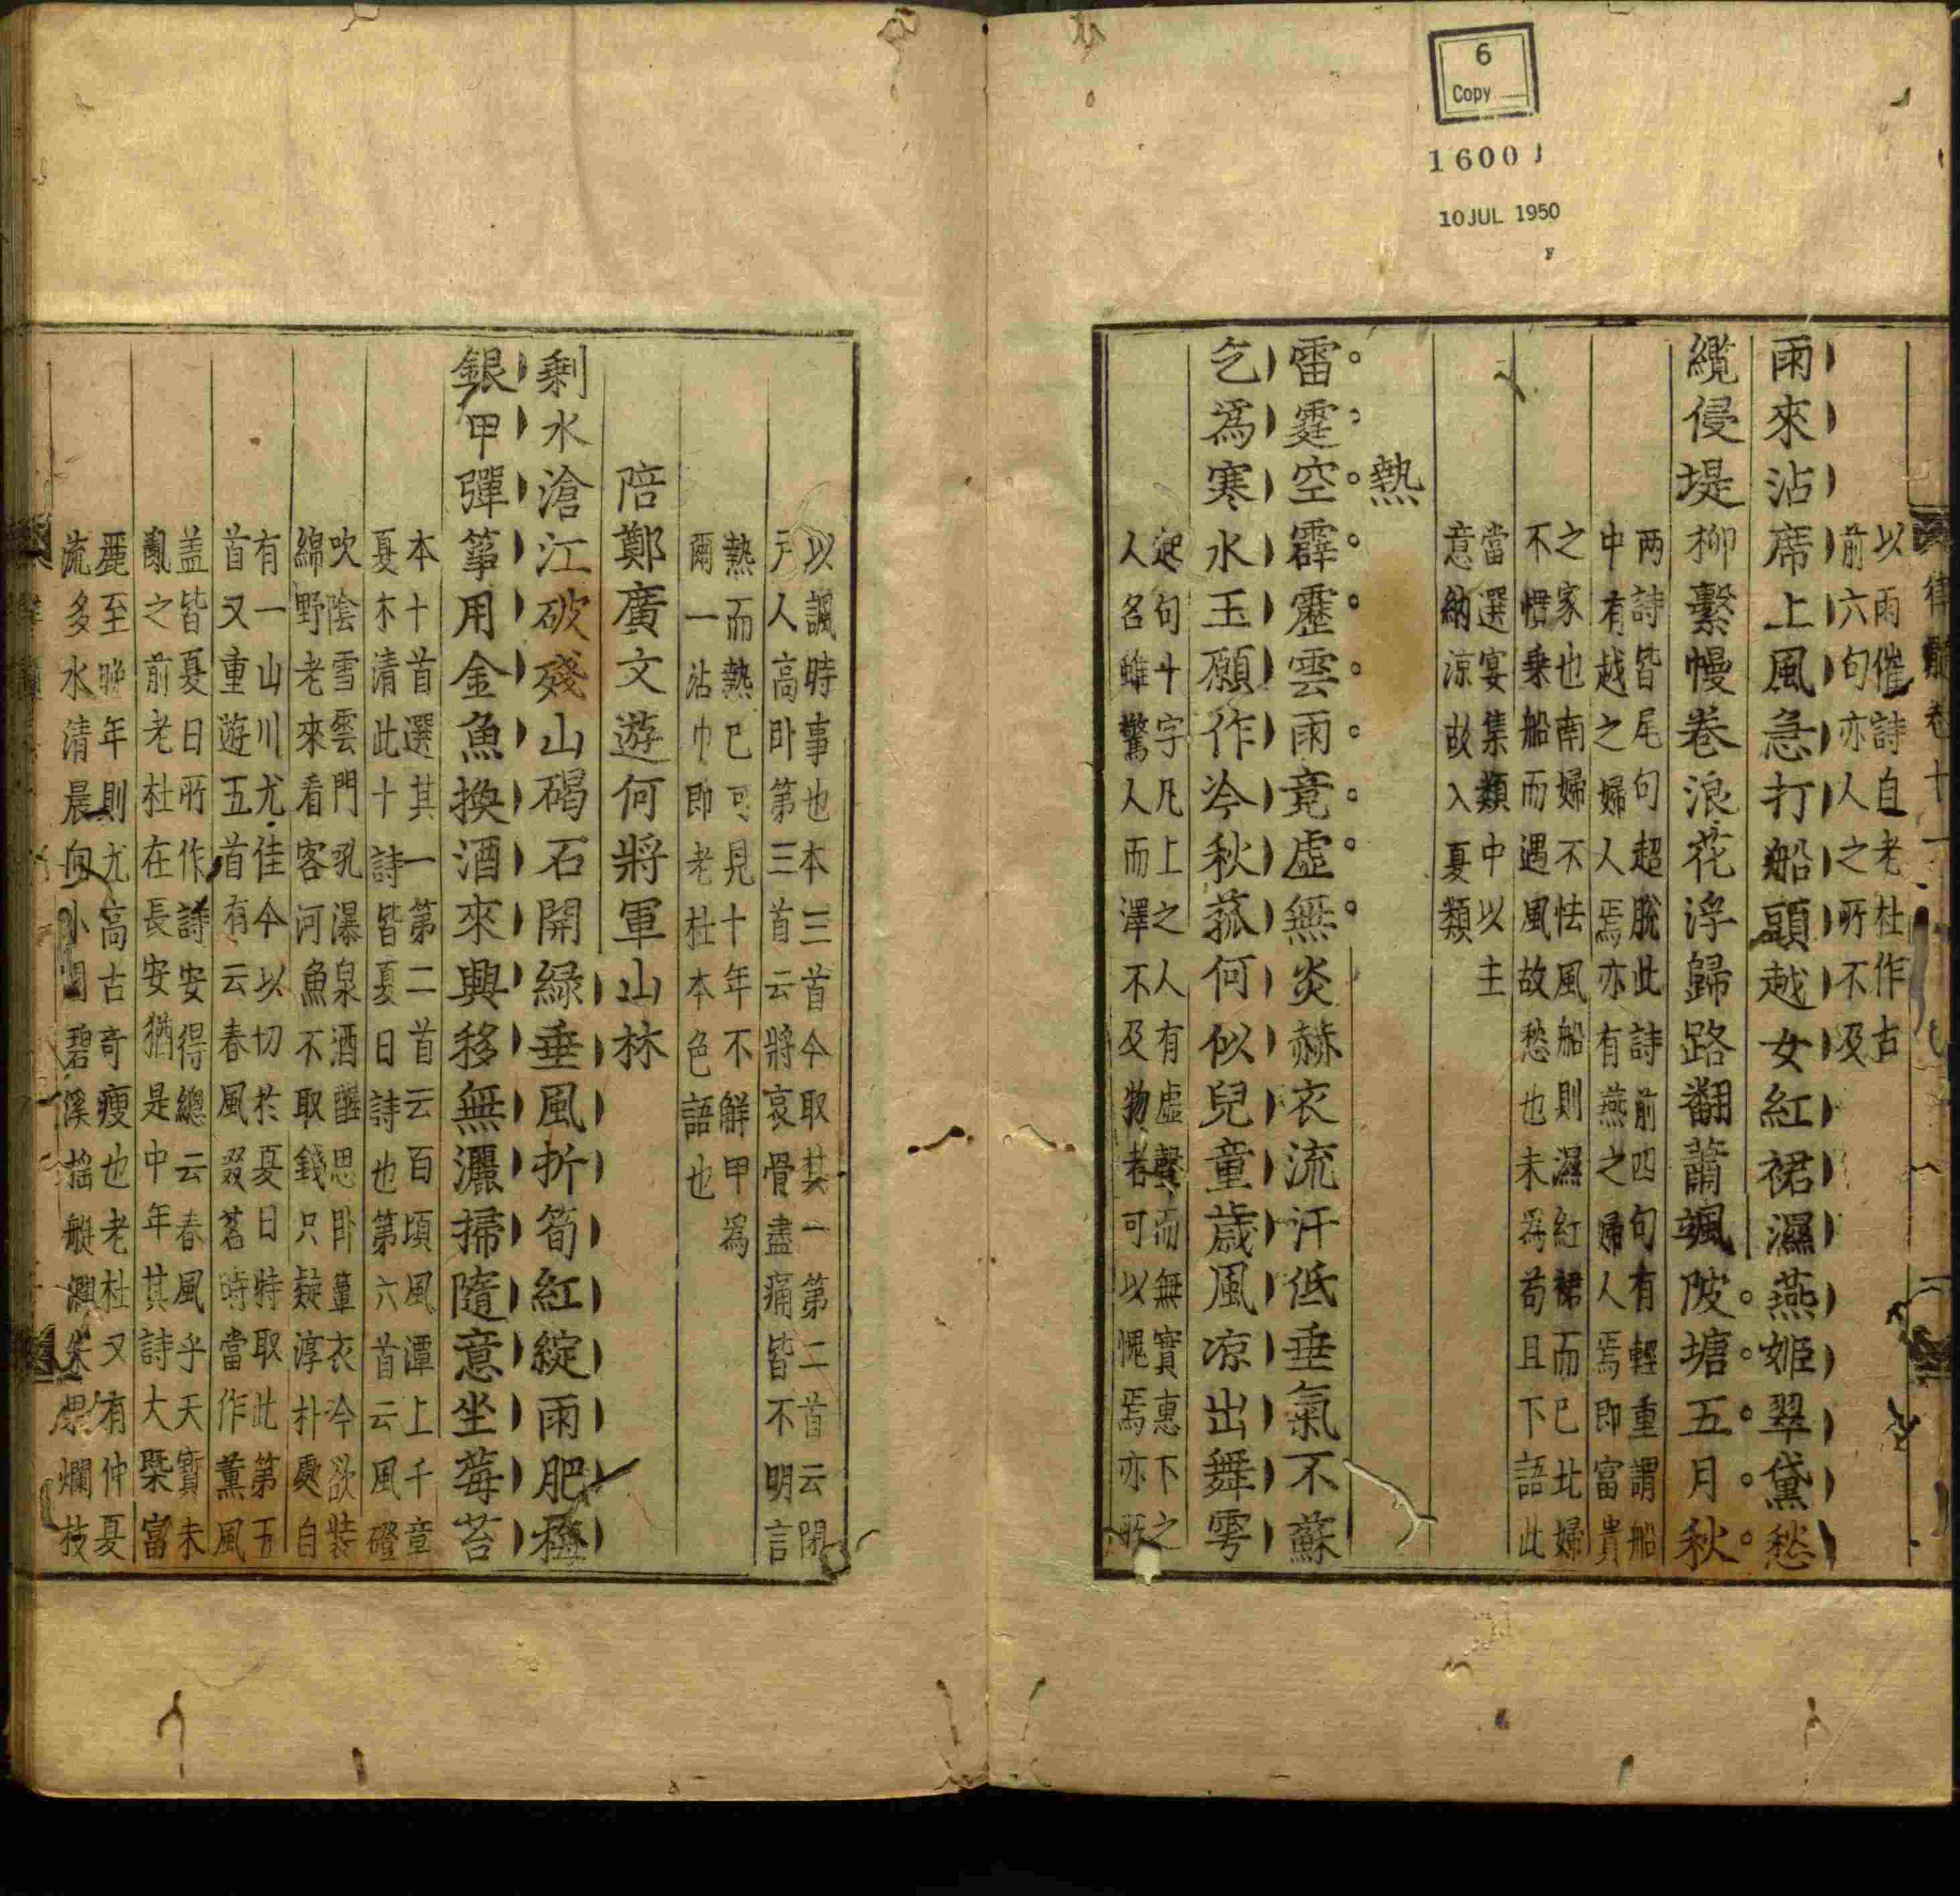 6
Copy
1600
10JUL 1950
以雨催詩自老杜作古
前六句亦人之所不及
雨來沾席上風急打船頭越女紅裙濕燕姬翠黛愁
纜侵堤柳繫幔卷浪花浮歸路翻蕭颯陂塘五月秋
两詩皆尾句超脫此詩前四句有輕重謂船
中有越之婦人焉亦有燕之婦人焉即富貴
之家也南婦不怯風船則濕紅裙而已北婦
不慣乗船而遇風故愁也未為苟且下語此
當選宴集類中以主
意納凉故入夏類
熱
雷霆空霹靂雲雨竟虛無炎赫衣流汗低垂氣不蘇
乞爲寒水玉願作冷秋菰何似兒童歲風凉出舞雩
起句十字凡上之人有虛聲而無實惠下之
人名雖驚人而澤不及物者可以愧焉亦所
以諷時事也本三首今取其一第二首云閉
戶人高卧第三首云將衰骨盡痛皆不明言
熱而熱已可見十年不解甲爲
爾一沾巾即老杜本色語也
陪鄭廣文遊何將軍山林
剩水滄江破殘山碣石開緑垂風折筍紅綻雨肥梅
銀甲彈箏用金魚換酒來興移無灑掃隨意坐莓苔
本十首選其一第二首云百頃風潭上千章
夏木清此十詩皆夏日詩也第六首云風磴
吹陰雪雲門吼瀑泉酒醒思卧簟衣冷欲裝
綿野老來看客河魚不取錢只疑淳朴處自
有一山川尤佳今以切於夏日特取此第五
首又重遊五首有云春風啜茗時當作薰風
盖皆夏日所作詩安得總云春風乎天寶未
亂之前老杜在長安猶是中年其詩大槩富
麗至晚年則尤高古奇瘦也老杜又有仲夏
流多水清晨向小園碧溪揺艇濶朱果爛枝